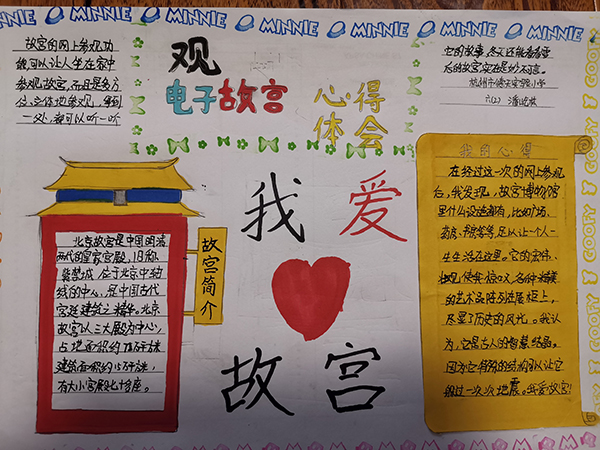 MINNIE MINNIE MINNIE MINNIE MINNIE MINNIE
故宫的网上参观功
能可以让人坐在家中
参观故宫,而且是多方
位、立体地参观,每到
一处,都可以听一听
观
电子故宫
心得
体会
它的故事,冬天还能看看雪
后的故宫实在是妙不可言。
六(2)
北京故宫是中国明清
两代的皇家宫殿,旧称
紫禁城,位于北京中轴
线的中心,是中国古代
宫廷建筑之精华。北京
故宫以三大殿为中心,
占地面积约72万平方米
建筑面积约15万平方米,
有大小宫殿七十多座。
故宫简介
我爱
故宫
我的心得
在经过这一次的网上参观
后,我发现,故宫博物馆
里什么设施都有,比如
足以让一个人一
生生活在这里。它的宏伟、
壮观使我惊叹,各种精美
的艺术品陈列在展柜上,
尽显了历史的风光。我认
为,它是古人的智慧结晶。
因为它特殊的结构可以让它
躲过一次次地震。我爱故宫!
GOOFY
GOOFY